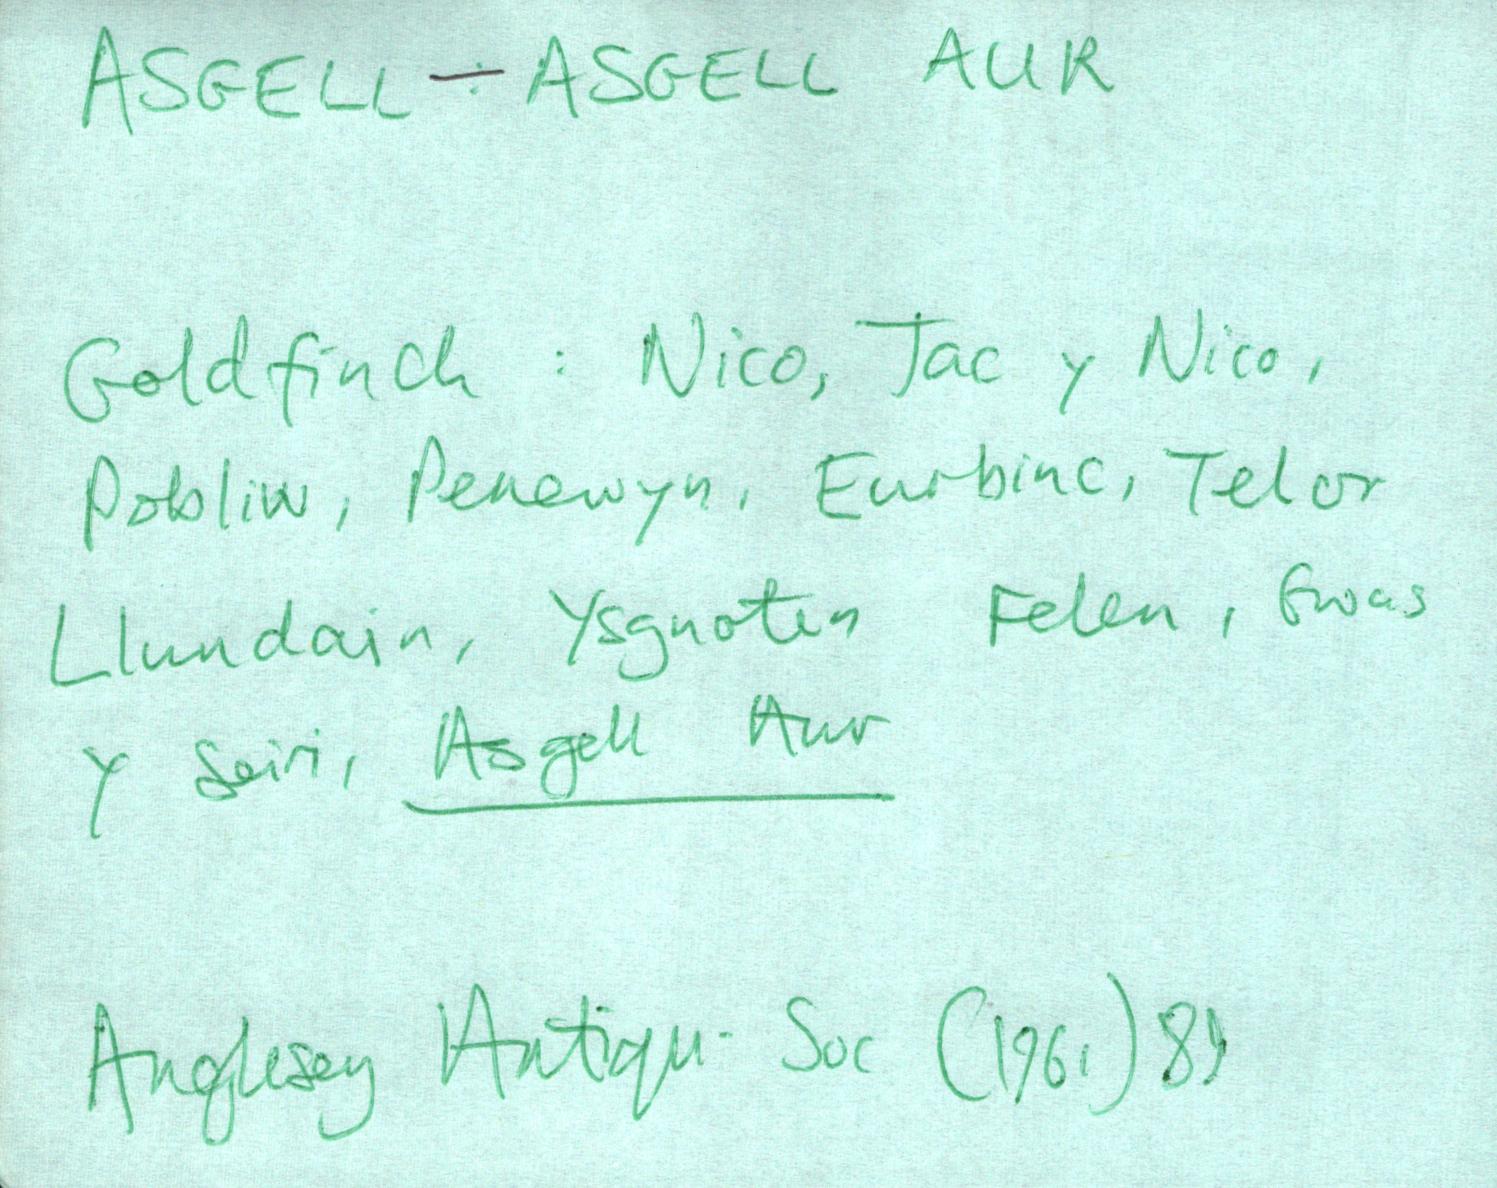 ASGELL — ASGELL AUR
Goldfinch : Nico, Jac y Nico,
Pobliw, Penewyn, Eurbinc, Telor
Llundain, Ysgnoten Felen, Gwas
y Seiri, Asgell Aur
Anglesey Antiqu. Soc (1961) 89